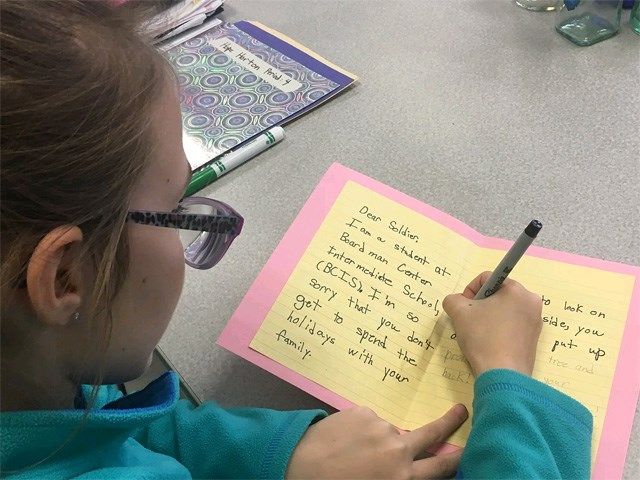 Hope Horton Period 4
Dear Soldier,
I am a student at
Boardman Center
Intermediate School,
(BCIS). I'm so
sorry that you don't
get to spend the
holidays with your
family.
to look on
side, you
put up
tree and
back!
your